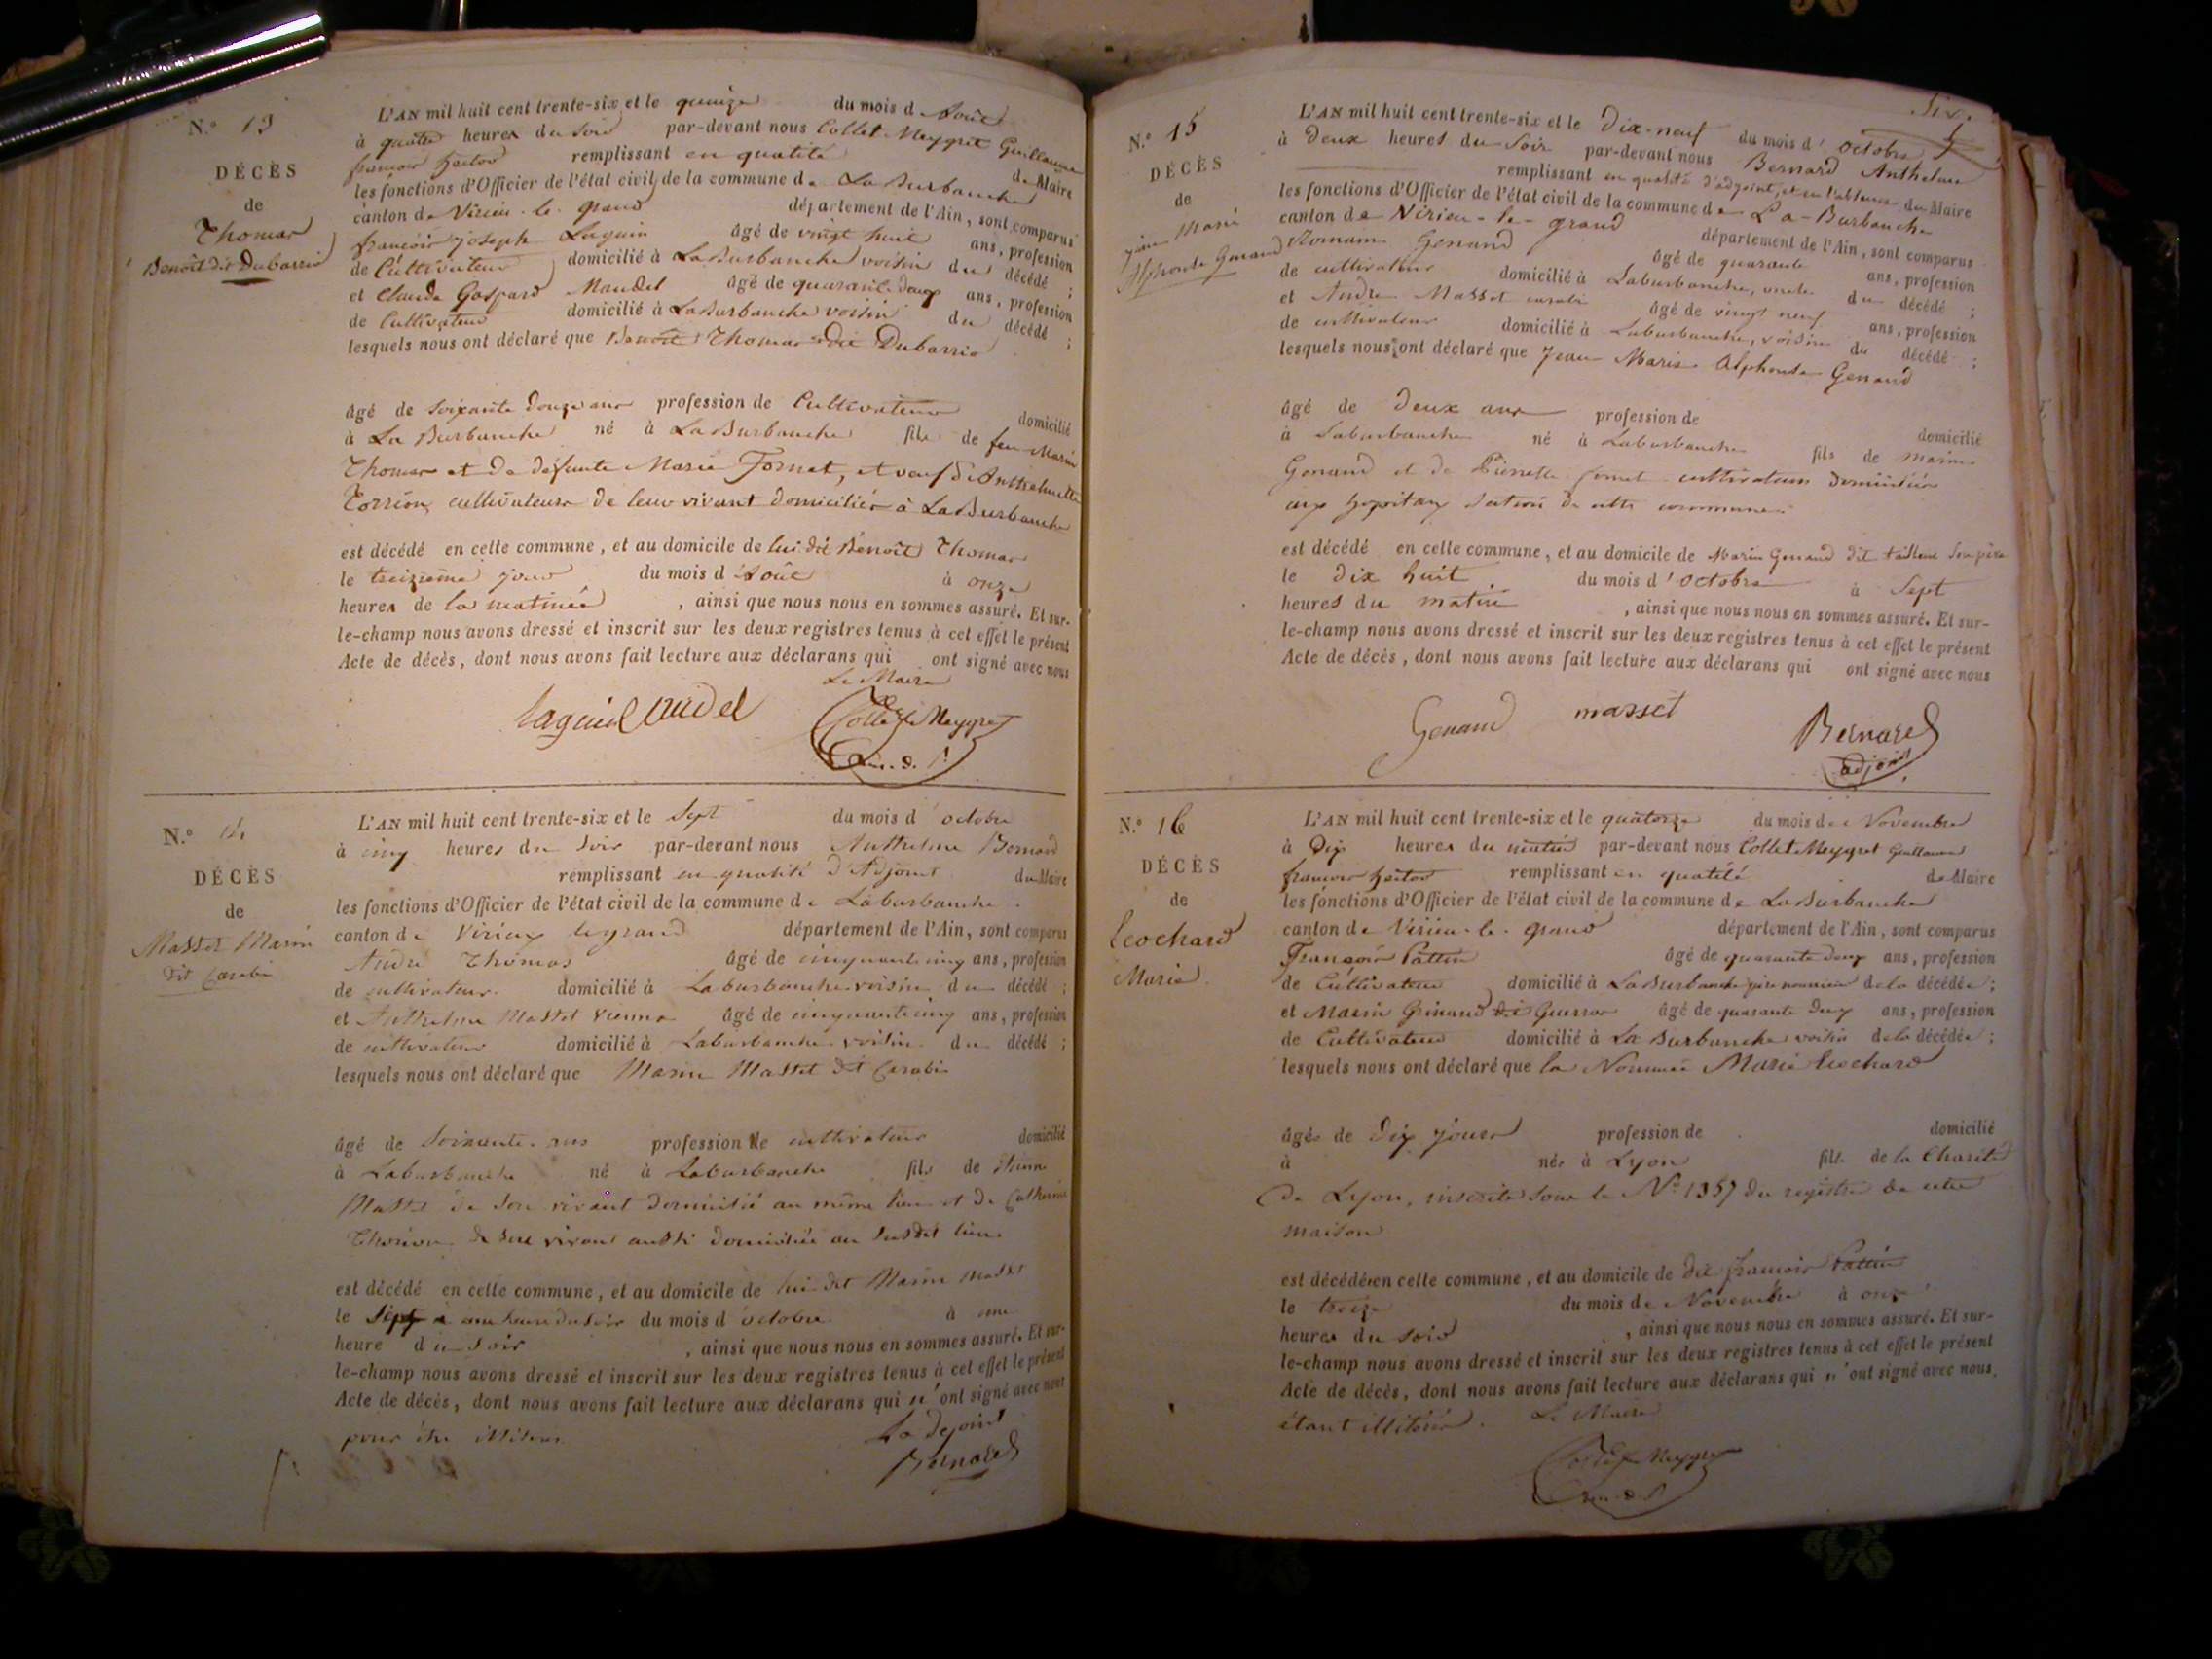 N.° 13
DÉCÈS
de
Thomas
Benoît dit Dubarrio
L'AN mil huit cent trente-six et le quinze du mois d Août
à quatre heures du soir par-devant nous Collet Meygret Guillaume
françois hector remplissant en qualité de Maire
les fonctions d'Officier de l'état civil de la commune de La Burbanche
canton de Virieu-le-grand département de l'Ain, sont comparus
françois joseph Laguin âgé de vingt huit ans, profession
de Cultivateur domicilié à La Burbanche voisin du décédé ;
et Claude Gaspard Maudel âgé de quarante deux ans, profession
de Cultivateur domicilié à La Burbanche voisin du décédé ;
lesquels nous ont déclaré que Benoît Thomas dit Dubarrio
âgé de soixante douze ans profession de Cultivateur domicilié
à La Burbanche né à La Burbanche fils de feu Marin
Thomas et de défunte Marie Fornet, et veuf d'Anthelmette
Torrion, cultivateurs de leur vivant domiciliés à La Burbanche
est décédé en cette commune, et au domicile de lui dit Benoît Thomas
le treizième jour du mois d Août à onze
heures de la matinée , ainsi que nous nous en sommes assuré. Et sur-
le-champ nous avons dressé et inscrit sur les deux registres tenus à cet effet le présent
Acte de décès, dont nous avons fait lecture aux déclarans qui ont signé avec nous
Le Maire
Collet Meygret
N.° 14
DÉCÈS
de
Masset Marin
dit Carabi
L'AN mil huit cent trente-six et le sept du mois d'octobre
à cinq heures du soir par-devant nous Anthelme Bernard
remplissant en qualité d'Adjoint du Maire
les fonctions d'Officier de l'état civil de la commune de Laburbanche
canton de Virieux legrand département de l'Ain, sont comparus
André Thomas âgé de cinquante cinq ans, profession
de cultivateur domicilié à Laburbanche voisin du décédé ;
et Anthelme Masset âgé de cinquante cinq ans, profession
de cultivateur domicilié à Laburbanche voisin du décédé ;
lesquels nous ont déclaré que Marin Masset dit Carabi
âgé de soixante ans profession de cultivateur domicilié
à Laburbanche né à Laburbanche fils de
Masset de son vivant domicilié au même lieu et de Catherine
de son vivant aussi domiciliée au susdit lieu
est décédé en cette commune, et au domicile de lui dit Marin Masset
le sept à une heure du soir du mois d'octobre à une
heure du soir , ainsi que nous nous en sommes assuré. Et sur-
le-champ nous avons dressé et inscrit sur les deux registres tenus à cet effet le présent
Acte de décès, dont nous avons fait lecture aux déclarans qui n'ont signé avec nous
pour être
La dejoint
Bernard
Six.
N.° 15
DÉCÈS
de
jean Marie
Alphonse Genand
L'AN mil huit cent trente-six et le Dix-neuf du mois d'octobre
à Deux heures du Soir par-devant nous Bernard Anthelme
remplissant en qualité d'adjoint, et en l'absence du Maire
les fonctions d'Officier de l'état civil de la commune de La-Burbanche
canton de Virieu-le-grand département de l'Ain, sont comparus
Romain Genand âgé de quarante ans, profession
de cultivateur domicilié à Laburbanche, oncle du décédé ;
et André Masset carabi âgé de vingt neuf ans, profession
de cultivateur domicilié à Laburbanche, voisin du décédé ;
lesquels nous ont déclaré que Jean Marie Alphonse Genand
âgé de Deux ans profession de domicilié
à Laburbanche né à Laburbanche fils de Marin
Genand et de Pierrette fornet cultivateurs domiciliés
aux hopitaux section de cette commune
est décédé en cette commune, et au domicile de Marin Genand dit tailleur son père
le dix huit du mois d'octobre à Sept
heures du matin , ainsi que nous nous en sommes assuré. Et sur-
le-champ nous avons dressé et inscrit sur les deux registres tenus à cet effet le présent
Acte de décès, dont nous avons fait lecture aux déclarans qui ont signé avec nous
Genand masset Bernard
adjoint
N.° 16
DÉCÈS
de
Leochard
Marie
L'AN mil huit cent trente-six et le quatorze du mois de Novembre
à Dix heures du matin par-devant nous Collet Meygret Guillaume
françois hector remplissant en qualité de Maire
les fonctions d'Officier de l'état civil de la commune de La Burbanche
canton de Virieu-le-grand département de l'Ain, sont comparus
François Pattin âgé de quarante deux ans, profession
de Cultivateur domicilié à La Burbanche père nourricier de la décédée ;
et Marin Grinand dit âgé de quarante deux ans, profession
de Cultivateur domicilié à La Burbanche voisin de la décédée ;
lesquels nous ont déclaré que la Nommée Marie Leochard
âgée de Dix jours profession de domicilié
à née à Lyon fille de la Charité
de Lyon, inscrite sous le N.° 1357 du registre de cette
maison
est décédée en cette commune, et au domicile de dit françois Pattin
le treize du mois de Novembre à onze
heures du soir , ainsi que nous nous en sommes assuré. Et sur-
le-champ nous avons dressé et inscrit sur les deux registres tenus à cet effet le présent
Acte de décès, dont nous avons fait lecture aux déclarans qui n'ont signé avec nous,
étant illitérés. Le Maire
Collet Meygret